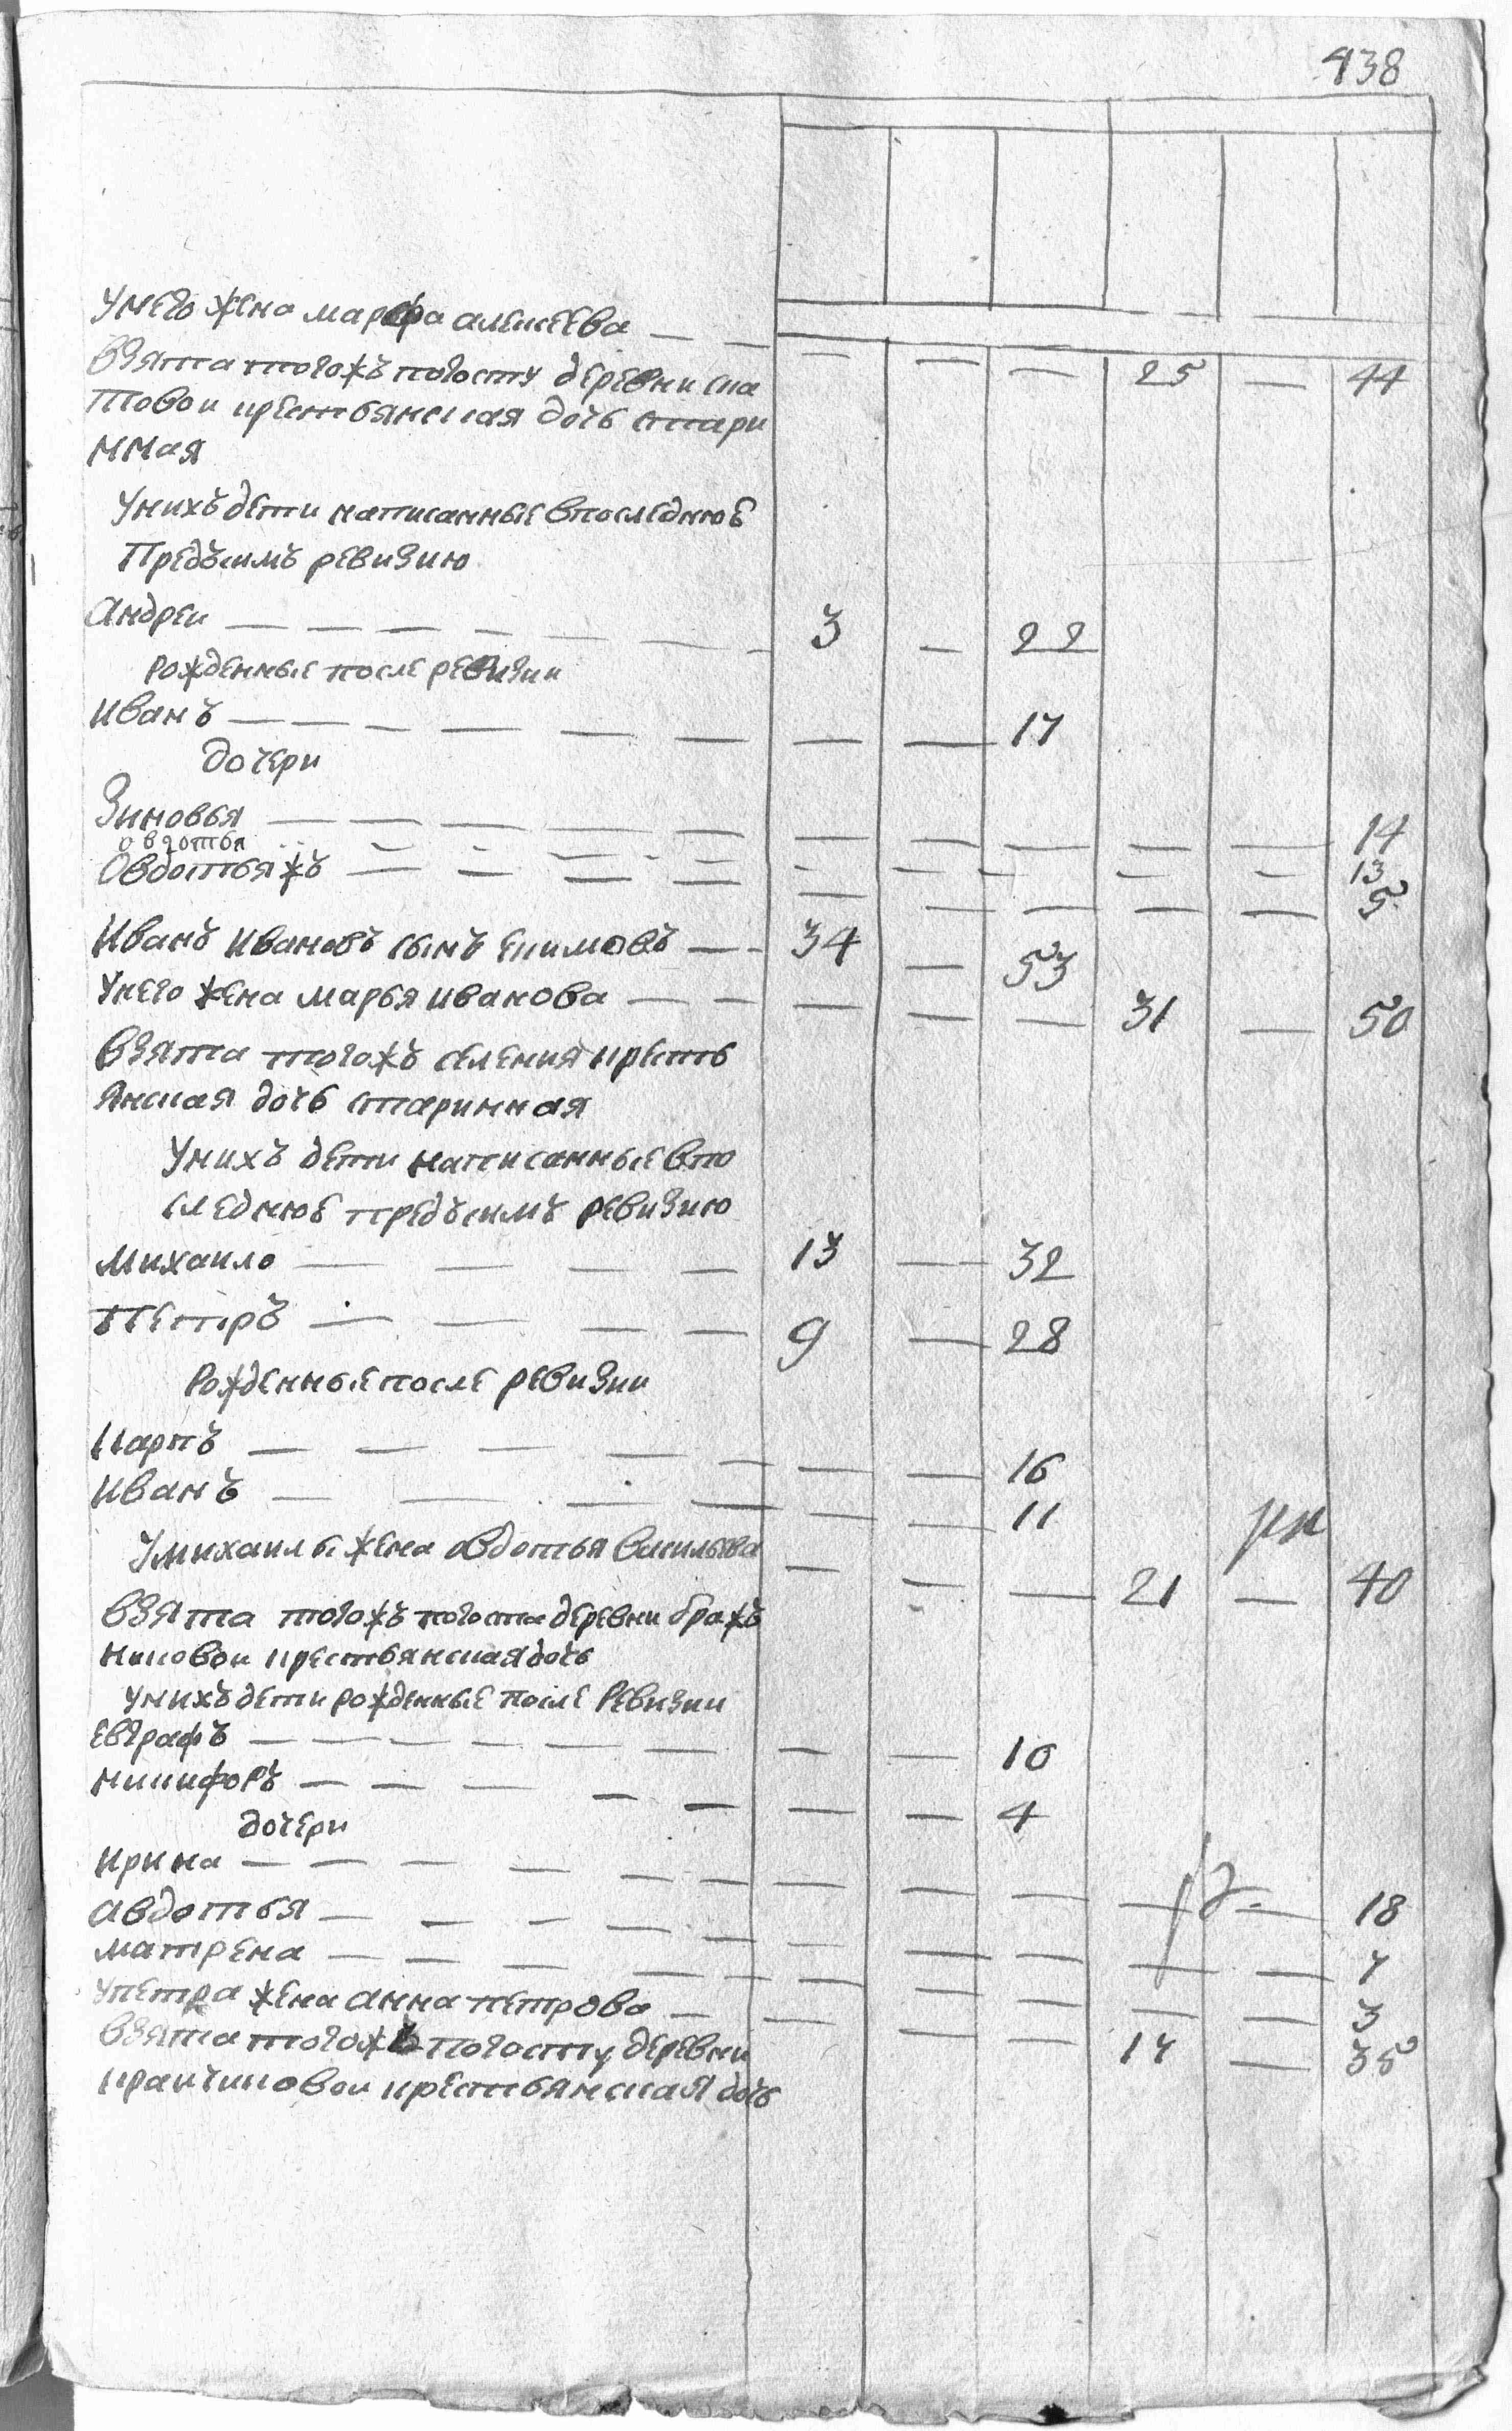 438
Унего жена марфа алексеева — — — — — 25 — 44
Взята тогожъ погосту деревни ска
товои крестьянская дочь стари
нная
Унихъ дети написанные впоследнюю
Предъсимъ ревизию
Андреи — — — — — — 3 — 22
Рожденные после ревизии
Иванъ — — — — — — — — 17
дочери
Зиновья — — — — — — — — — — 14
овдотья — — — — — — — — — — 13
Овдотьяжъ — — — — — — — — — 5
Иванъ Ивановъ сынъ екимовъ — — 34 — 53
Унего жена марья иванова — — — — — 31 — 50
Взята тогожъ селения кресть
янская дочь старинная
Унихъ дети написанные впо
следнюю предъсимъ ревизию
михаило — — — — 13 — 32
Петръ — — — — 9 — 28
Рожденные после ревизии
Карпъ — — — — — — — 16
Иванъ — — — — — — 11
Умихаилы жена овдотья васильева — — — 21 — 40
Взята тогожъ погоста деревни бражъ
никовои крестьянская дочь
унихъ дети рожденные после ревизии
евграфъ — — — — — — — — 10
никифоръ — — — — — — — 4
дочери
ирина — — — — — — — — — — — 18
авдотья — — — — — — — — — — 7
матрена — — — — — — — — — — 3
упетра жена анна петрова — — — — 17 — 35
взята тогожъ погосту деревни
крестьянская дочь